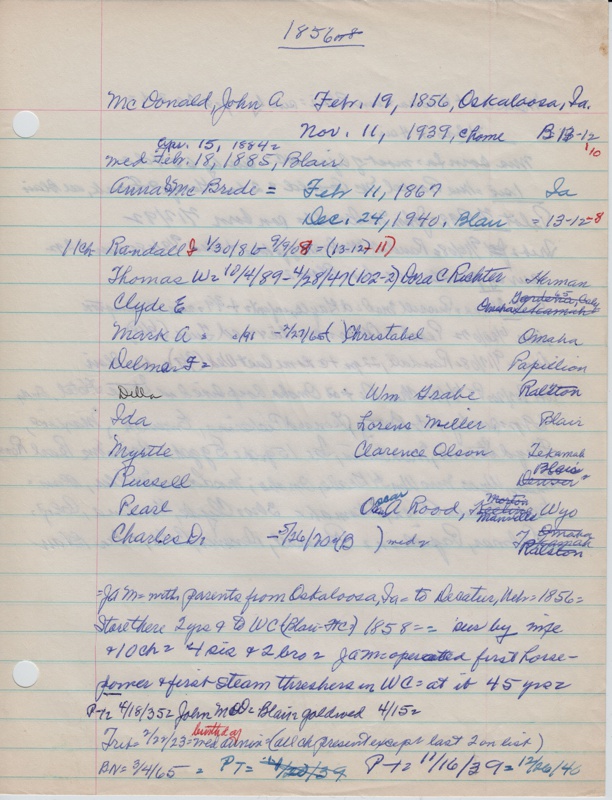 1856 or 8
McDonald, John A Febr. 19, 1856, Oskaloosa, Ia.
Nov. 11, 1939, home B 13-12
10
Apr. 15, 1884=
med Feb. 18, 1885, Blair
Anna McBride = Feb 11, 1867 Ia
Dec. 24, 1940. Blair = 13-12-8
11 Ch Randall J 1/30/86- 9/9/08 = (13-12-11)
Thomas W= 10/4/89-4/28/47 (102-2) Ora C Richter Herman
Clyde E Gardena, Calif
Omaha Tekamah
Mark A = -2/27/65 ( ) Christabel Omaha
Delmar F= Papillion
Della Wm Grabe Ralston
Ida Lorens Miller Blair
Myrtle Clarence Olson Tekamah
Russell Blair
Denver
Pearl Oscar A Rood, Morton Wyo
Manville
Charles D. -5/26/70 (B ) med= Omaha
Tekamah
Ralston
=JaM= with parents from Oskaloosa, Ia = to Decatur, Nebr = 1856=
Store there 2 yrs & to WC (Blair-FtC) 1858 == sur by wife
& 10 ch = 4 sis & 2 bro = JaM= operated first horse-
power & first steam threshers in WC = at it 45 yrs=
P-t= 4/18/35= John McD= Blair= goldwed 4/15=
birthday
Trib= 2/22/23= med dinner= (all ch present except last 2 on list)
BN= 3/4/65 = PT= 4/20/39 P-t= 11/16/39= 12/26/40